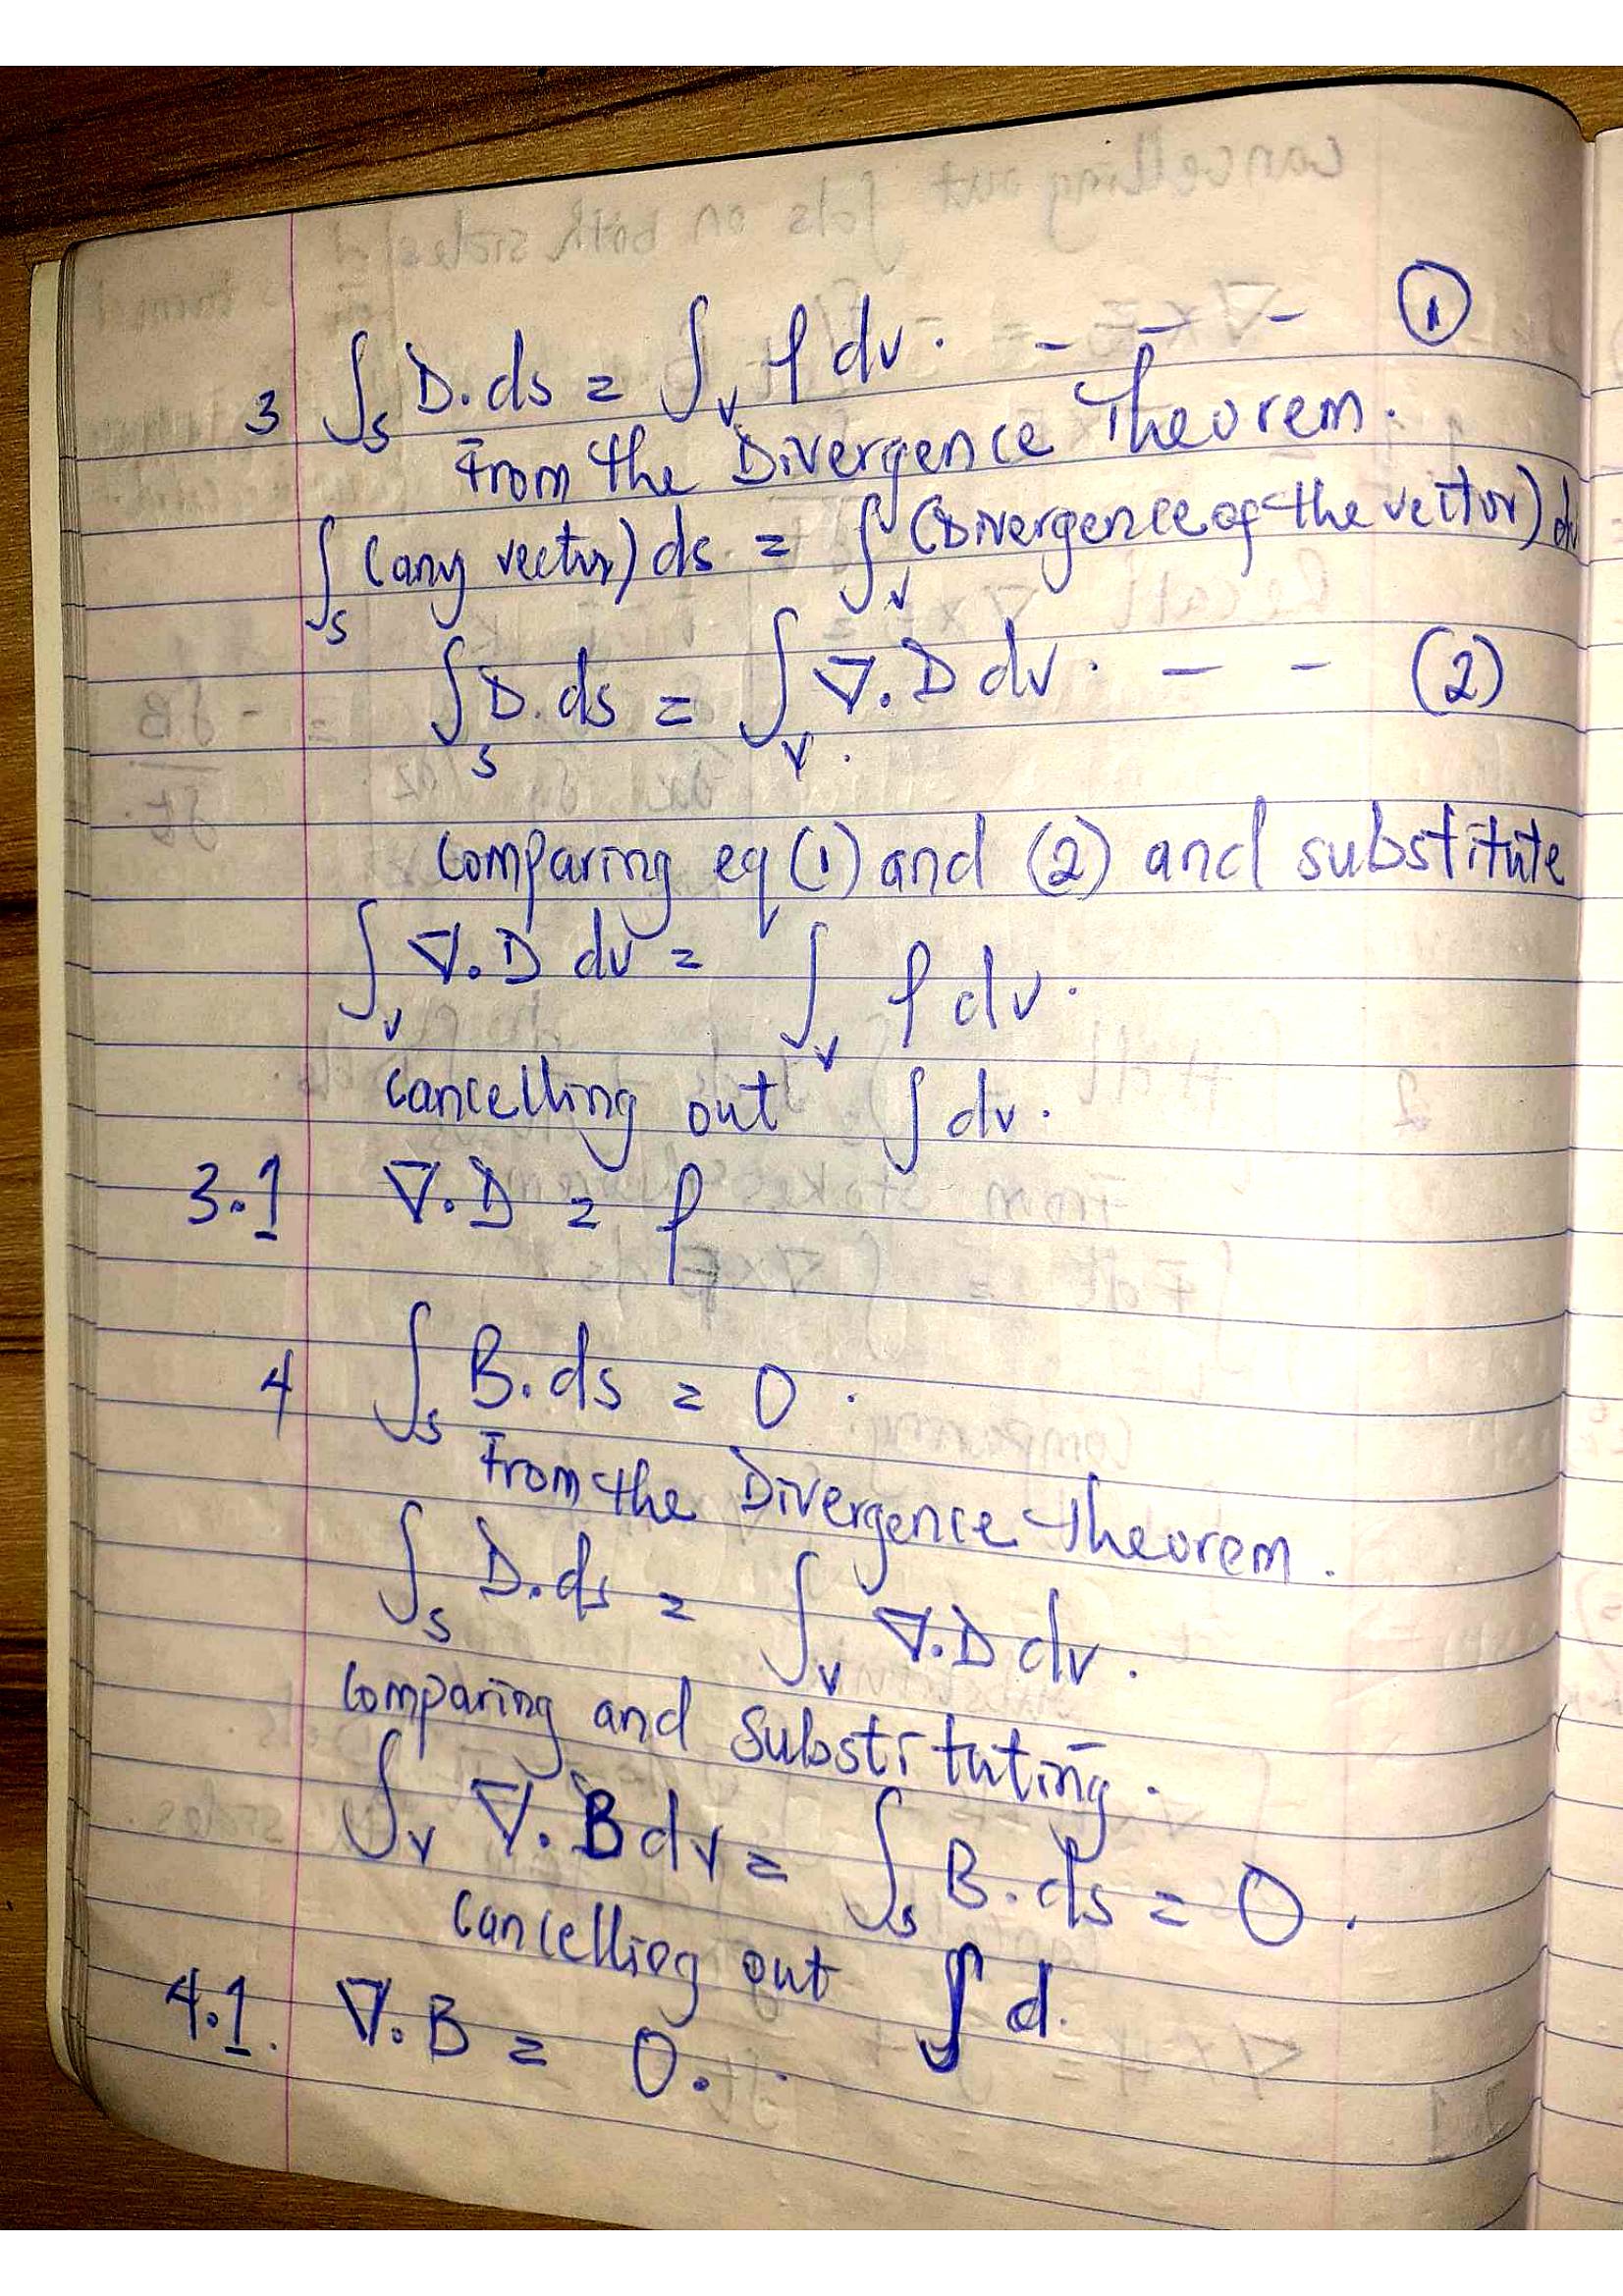 3 ∫_S D.ds = ∫_V ρ dv. - - - ①
From the Divergence Theorem.
∫_S (any vector) ds = ∫_V (Divergence of the vector) dv
∫_S D.ds = ∫_V ∇.D dv. - - (2)
Comparing eq (1) and (2) and substitute
∫_V ∇.D dv = ∫_V ρ dv.
cancelling out ∫ dv.
3.1 ∇.D = ρ
4 ∫_S B.ds = 0.
From the Divergence Theorem.
∫_S D.ds = ∫_V ∇.D dv.
Comparing and Substituting.
∫_V ∇.B dv = ∫_S B.ds = 0.
Cancelling out ∫ d.
4.1. ∇.B = 0.